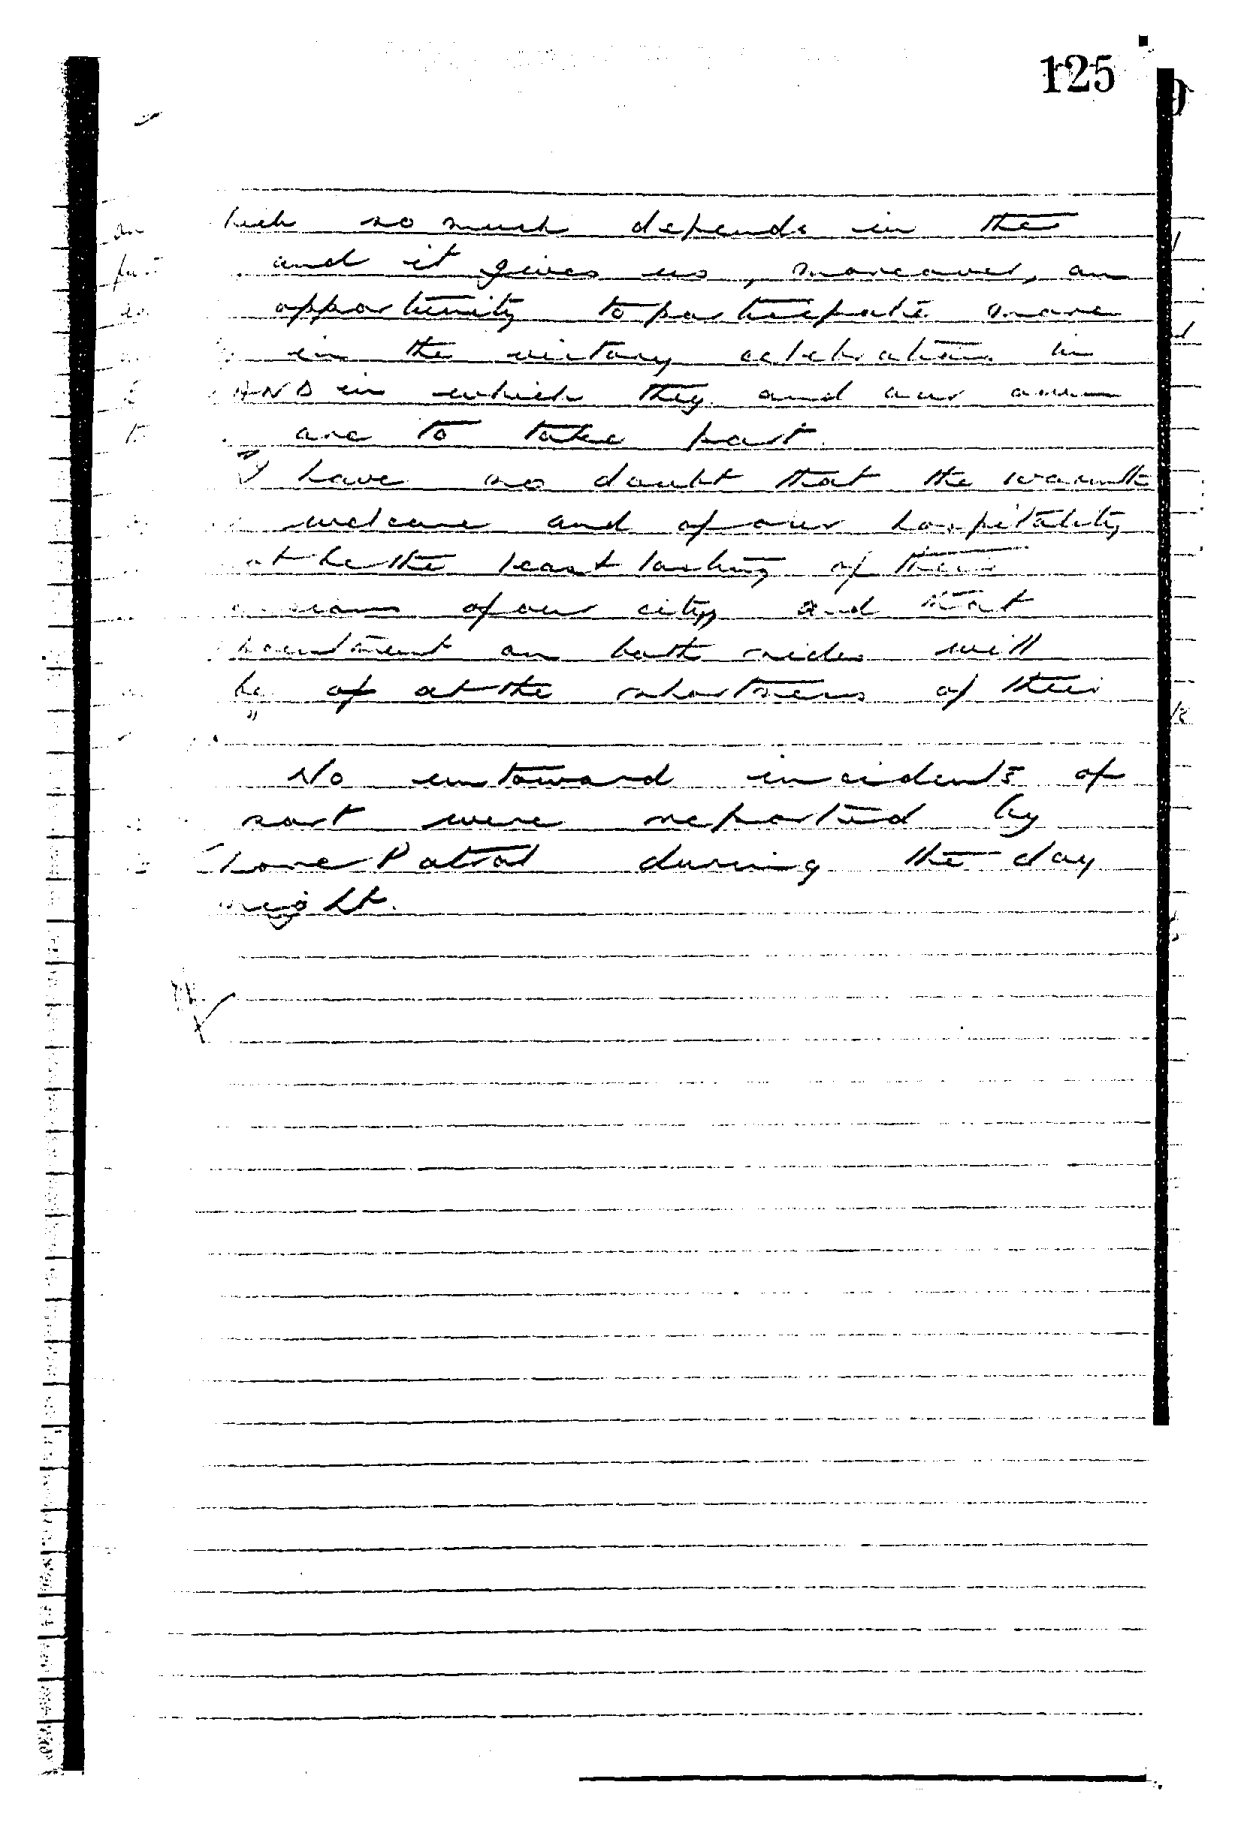 125
hich so much depends in the
and it gives us, moreover, an
opportunity to participate more
in the victory celebrations in
AND in which they and our own
are to take part.
"I have no doubt that the warmth
welcome and of our hospitality
not be the least lasting of their
of our city, and that
on both sides will
be at the shortness of their
"
No untoward incidents of
sort were reported by
Shore Patrol during the day
night.